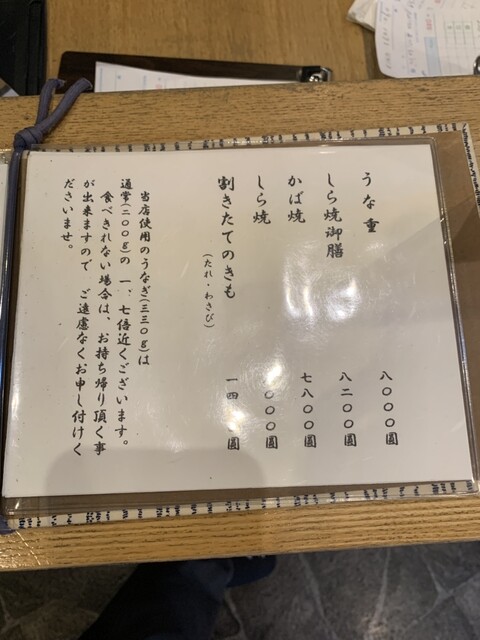 うな重 八〇〇〇圓
しら焼御膳 八二〇〇圓
かば焼 七八〇〇圓
しら焼 〇〇〇圓
割きたてのきも 一四 圓
(たれ・わさび)
当店使用のうなぎ(三三〇g)は
通常(二〇〇g)の 一、七倍近くございます。
食べきれない場合は、お持ち帰り頂く事
が出来ますので ご遠慮なくお申し付けく
ださいませ。